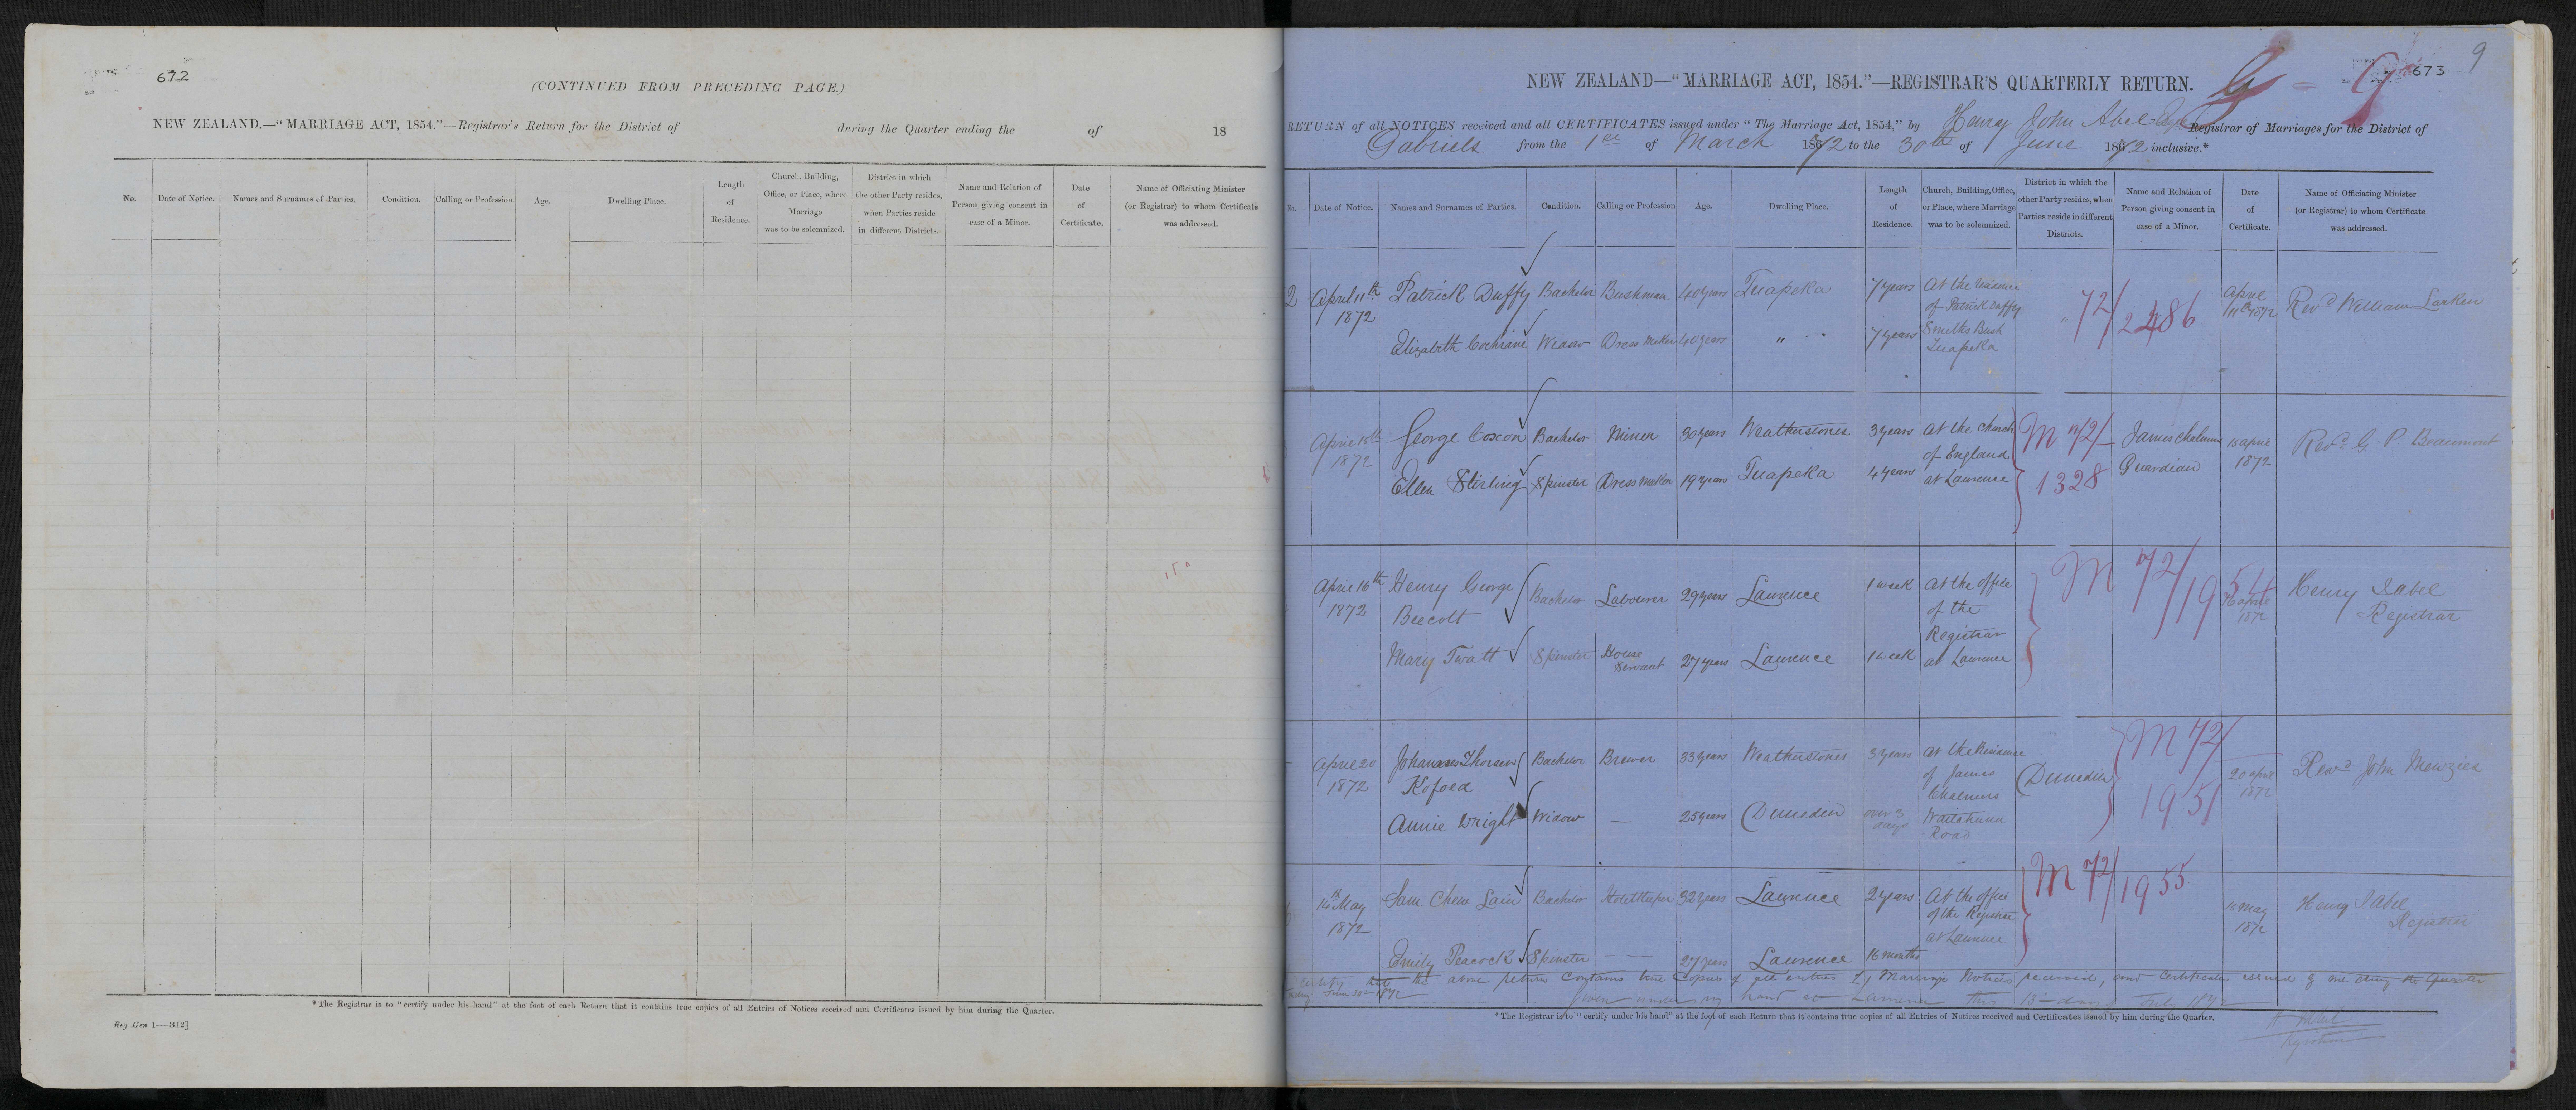 672
(CONTINUED FROM PRECEDING PAGE.)
NEW ZEALAND.—"MARRIAGE ACT, 1854."—Registrar's Return for the District of during the Quarter ending the of 18
No. Date of Notice. Names and Surnames of Parties. Condition. Calling or Profession. Age. Dwelling Place. Length of Residence. Church, Building, Office, or Place, where Marriage was to be solemnized. District in which the other Party resides, when Parties reside in different Districts. Name and Relation of Person giving consent in case of a Minor. Date of Certificate. Name of Officiating Minister (or Registrar) to whom Certificate was addressed.
*The Registrar is to "certify under his hand" at the foot of each Return that it contains true copies of all Entries of Notices received and Certificates issued by him during the Quarter.
Reg Gen 1—312]
673
9
NEW ZEALAND—"MARRIAGE ACT, 1854."—REGISTRAR'S QUARTERLY RETURN.
RETURN of all NOTICES received and all CERTIFICATES issued under "The Marriage Act, 1854," by Henry John Abel Registrar of Marriages for the District of
Gabriels from the 1st of March 1872 to the 30th of June 1872 inclusive.*
No. Date of Notice. Names and Surnames of Parties. Condition. Calling or Profession Age. Dwelling Place. Length of Residence. Church, Building, Office, or Place, where Marriage was to be solemnized. District in which the other Party resides, when Parties reside in different Districts. Name and Relation of Person giving consent in case of a Minor. Date of Certificate. Name of Officiating Minister (or Registrar) to whom Certificate was addressed.
2 April 11th Patrick Duffy Bachelor Bushman 40 years Tuapeka 7 years At the residence April Revd William Larkin
1872 of Patrick Duffy 72/2486 11th 1872
Elizabeth Cochrane Widow Dress Maker 40 years " 7 years Smiths Bush
Tuapeka
April 15th George Coxon Bachelor Miner 30 years Weatherstones 3 years At the Church M 72/ James Chalmers 15 April Revd G P Beaumont
1872 of England 1328 Guardian 1872
Ellen Stirling Spinster Dress Maker 19 years Tuapeka 4 years at Lawrence
April 16th Henry George Bachelor Labourer 29 years Lawrence 1 week At the office M 72/1954 16 April Henry J Abel
1872 Beecott of the 1872 Registrar
Mary Twatt Spinster House Servant 27 years Lawrence 1 week Registrar
at Lawrence
April 20 Johannes Thorsen Bachelor Brewer 33 years Weatherstones 3 years At the Residence (Dunedin) M 72/ 20 April Revd John Menzies
1872 Kofoed of James 1951 1872
Chalmers
Annie Wright Widow — 25 years (Dunedin over 3 days Waitahuna
Road
14th May Sam Chew Lain Bachelor Hotelkeeper 32 years Lawrence 2 years At the office M 72/1955 May Henry J Abel
1872 of the Registrar 1872 Registrar
at Lawrence
Emily Peacock Spinster — 27 years Lawrence 16 months
certify that the above return contains true copies of all entries of Marriage Notices received, and Certificates issued by me during the Quarter
ending June 30th 1872 Given under my hand at Lawrence this day of July 1872
*The Registrar is to "certify under his hand" at the foot of each Return that it contains true copies of all Entries of Notices received and Certificates issued by him during the Quarter.
Registrar